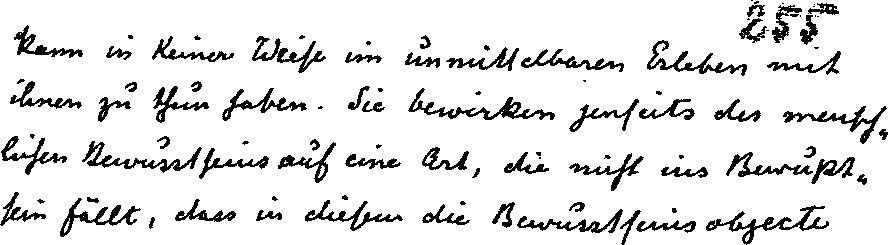 255
kann in keiner Weise im unmittelbaren Erleben mit
ihnen zu thun haben. Sie bewirken jenseits des mensch„
lichen Bewusstseins auf eine Art, die nicht ins Bewußt„
sein fällt, dass in diesem die Bewusstseinsobjecte